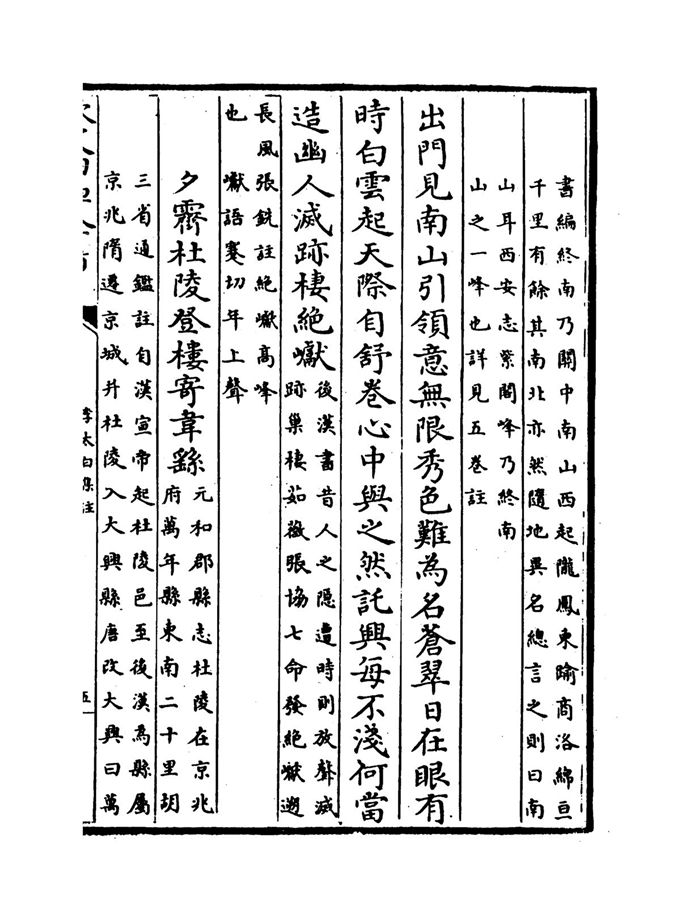 書編終南乃關中南山西起隴鳳東踰商洛綿亘
千里有餘其南北亦然隨地異名總言之則曰南
山耳西安志紫閣峰乃終南
山之一峰也詳見五卷註
出門見南山引領意無限秀色難為名蒼翠日在眼有
時白雲起天際自舒卷心中與之然託興每不淺何當
造幽人滅跡棲絶巘
後漢書昔人之隠遭時則放聲滅
跡巢棲茹薇張協七命發絶巘遡
長風張銑註絶巘髙峰
也巘語蹇切年上聲
夕霽杜陵登樓寄韋繇
元和郡縣志杜陵在京兆
府萬年縣東南二十里胡
三省通鑑註自漢宣帝起杜陵邑至後漢爲縣屬
京兆隋遷京城并杜陵入大興縣唐改大興曰萬
李太白集注
五